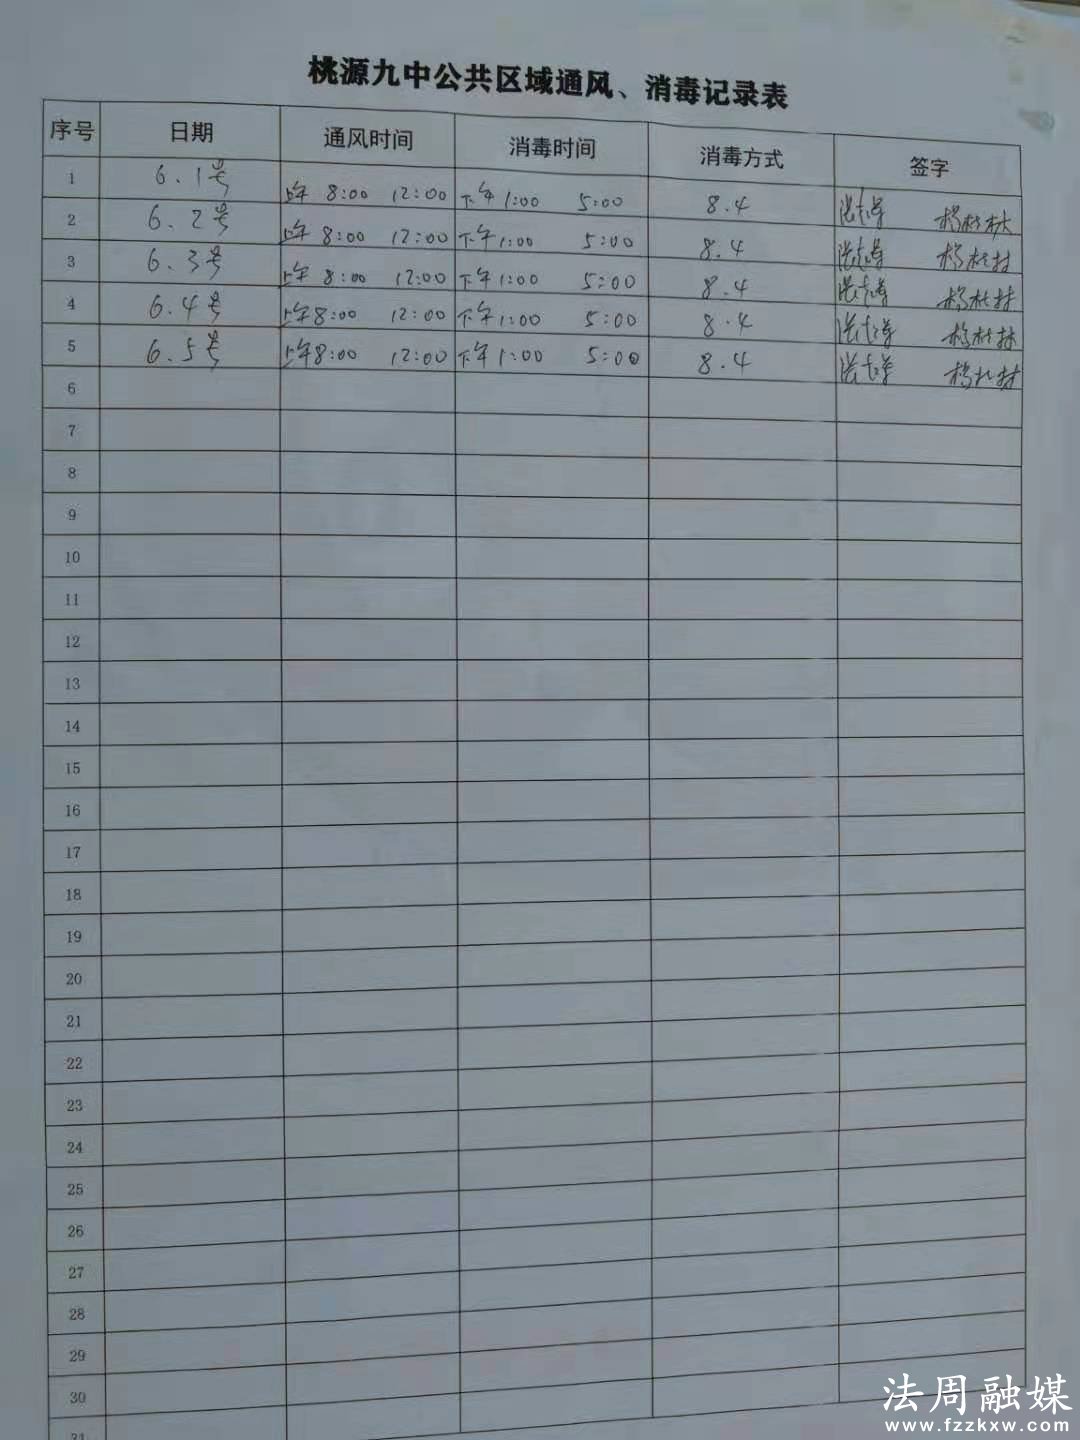 桃源九中公共区域通风、消毒记录表
序号 日期 通风时间 消毒时间 消毒方式 签字
1 6.1号 上午 8:00 12:00 下午1:00 5:00 8.4
2 6.2号 上午 8:00 12:00 下午1:00 5:00 8.4
3 6.3号 上午 8:00 12:00 下午1:00 5:00 8.4
4 6.4号 上午8:00 12:00 下午1:00 5:00 8.4
5 6.5号 上午8:00 12:00 下午1:00 5:00 8.4
6
7
8
9
10
11
12
13
14
15
16
17
18
19
20
21
22
23
24
25
26
27
28
29
30
31
法周融媒
www.fzzkxw.com